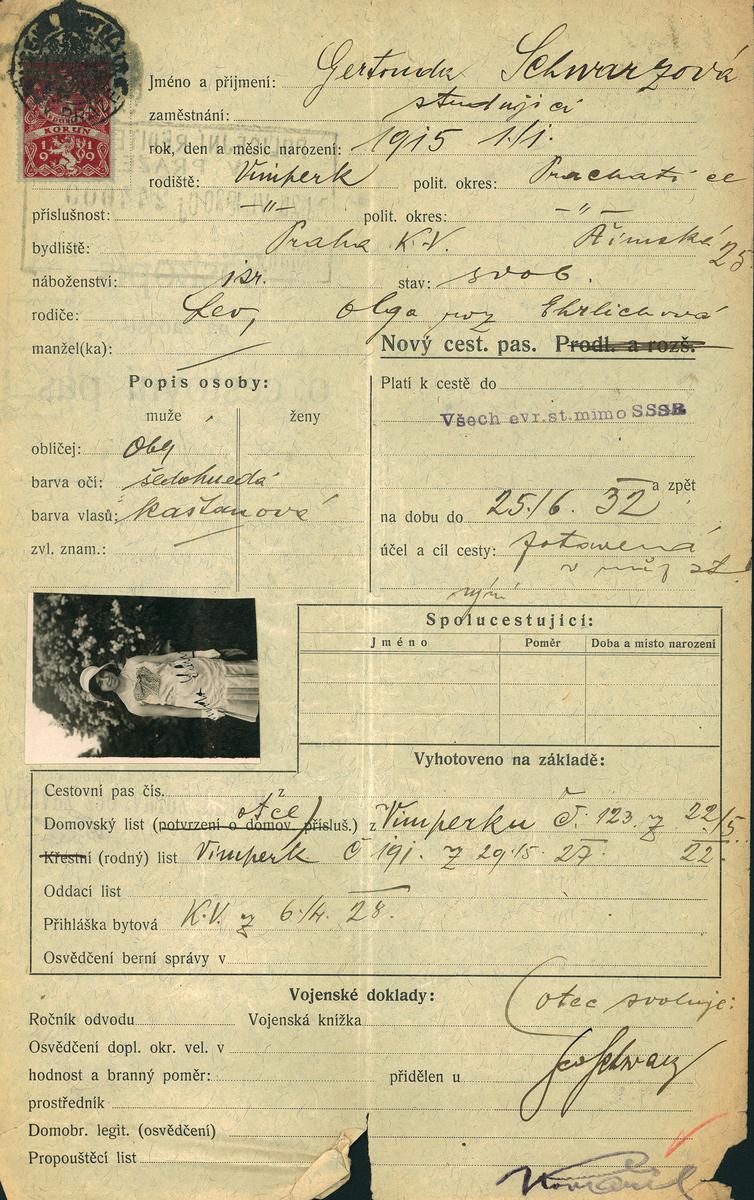 KORUN
1919
Jméno a příjmení: Gertruda Schwarzová
zaměstnání: studující
rok, den a měsíc narození: 1915 1./1.
rodiště: Vimperk polit. okres: Prachatice
příslušnost: -"- polit. okres: -"-
bydliště: Praha K.V. Římská 25
náboženství: isr. stav: svob.
rodiče: Lev, Olga roz Ehrlichová
manžel(ka):
Nový cest. pas. Prodl. a rozš.
Popis osoby:
muže ženy
obličej: Obl
barva očí: šedohnědá
barva vlasů: kaštanová
zvl. znam.:
Platí k cestě do
Všech evr.st.mimo SSSR
a zpět
na dobu do 25./6. 32
účel a cíl cesty:
Spolucestující:
Jméno Poměr Doba a místo narození
Vyhotoveno na základě:
Cestovní pas čís.
otče
Domovský list (potvrzení o domov. přísluš.) z Vimperku č. 123 z 22/5
22.
Křestní (rodný) list Vimperk č 191. z 29.15. 27
Oddací list
Přihláška bytová K.V. z 6./4. 28.
Osvědčení berní správy v
Vojenské doklady:
otec svoluje:
Ročník odvodu Vojenská knížka
Osvědčení dopl. okr. vel. v
Leo Schwarz
hodnost a branný poměr: přidělen u
prostředník
Domobr. legit. (osvědčení)
Propouštěcí list